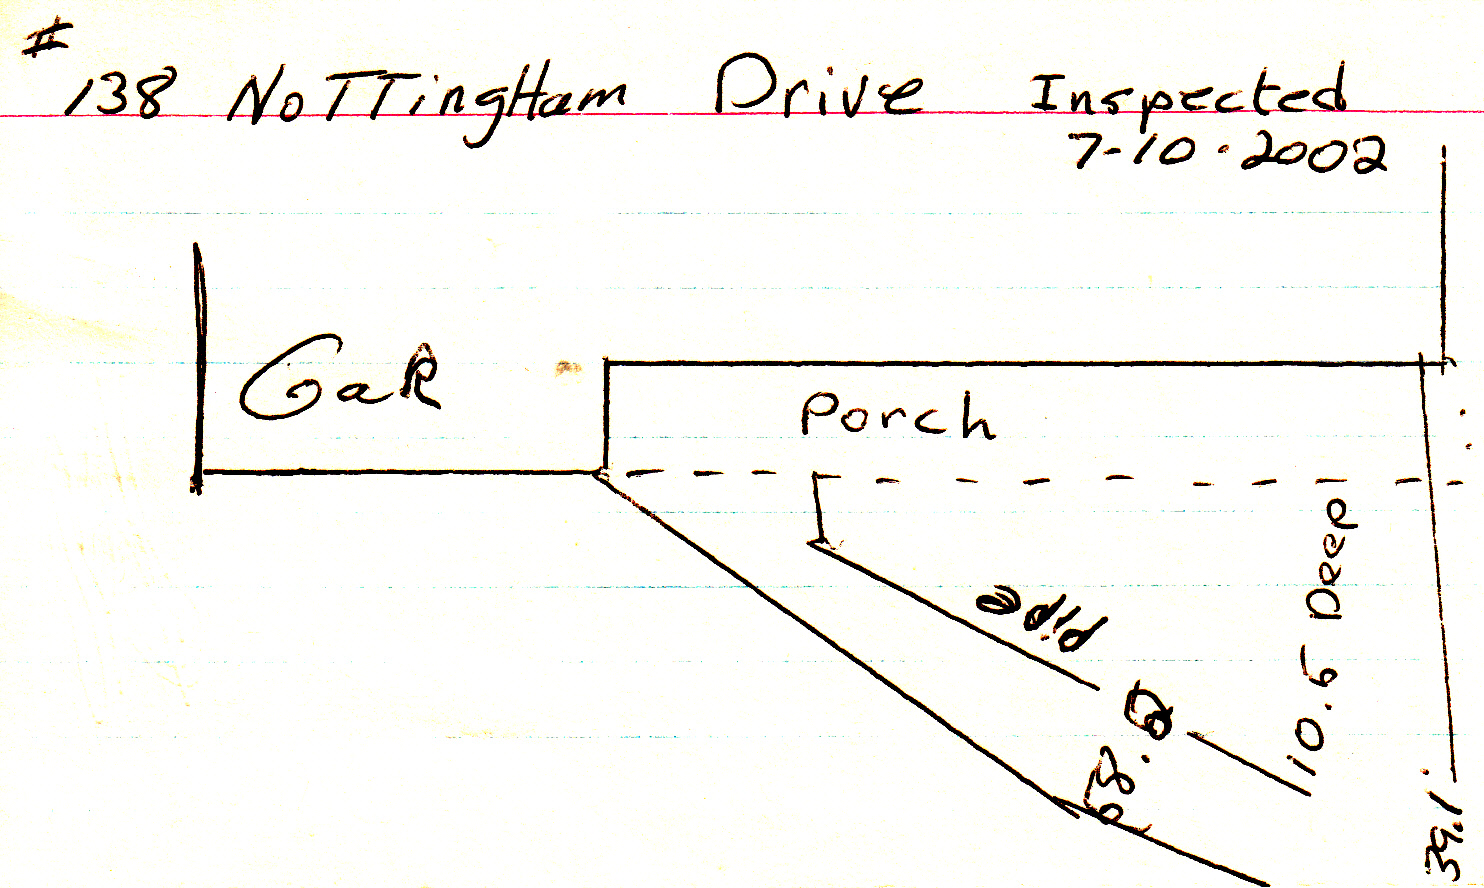 # 138 NoTTingHam Drive Inspected
7-10-2002
GaR
Porch
pipe
10.5 Deep
39.1